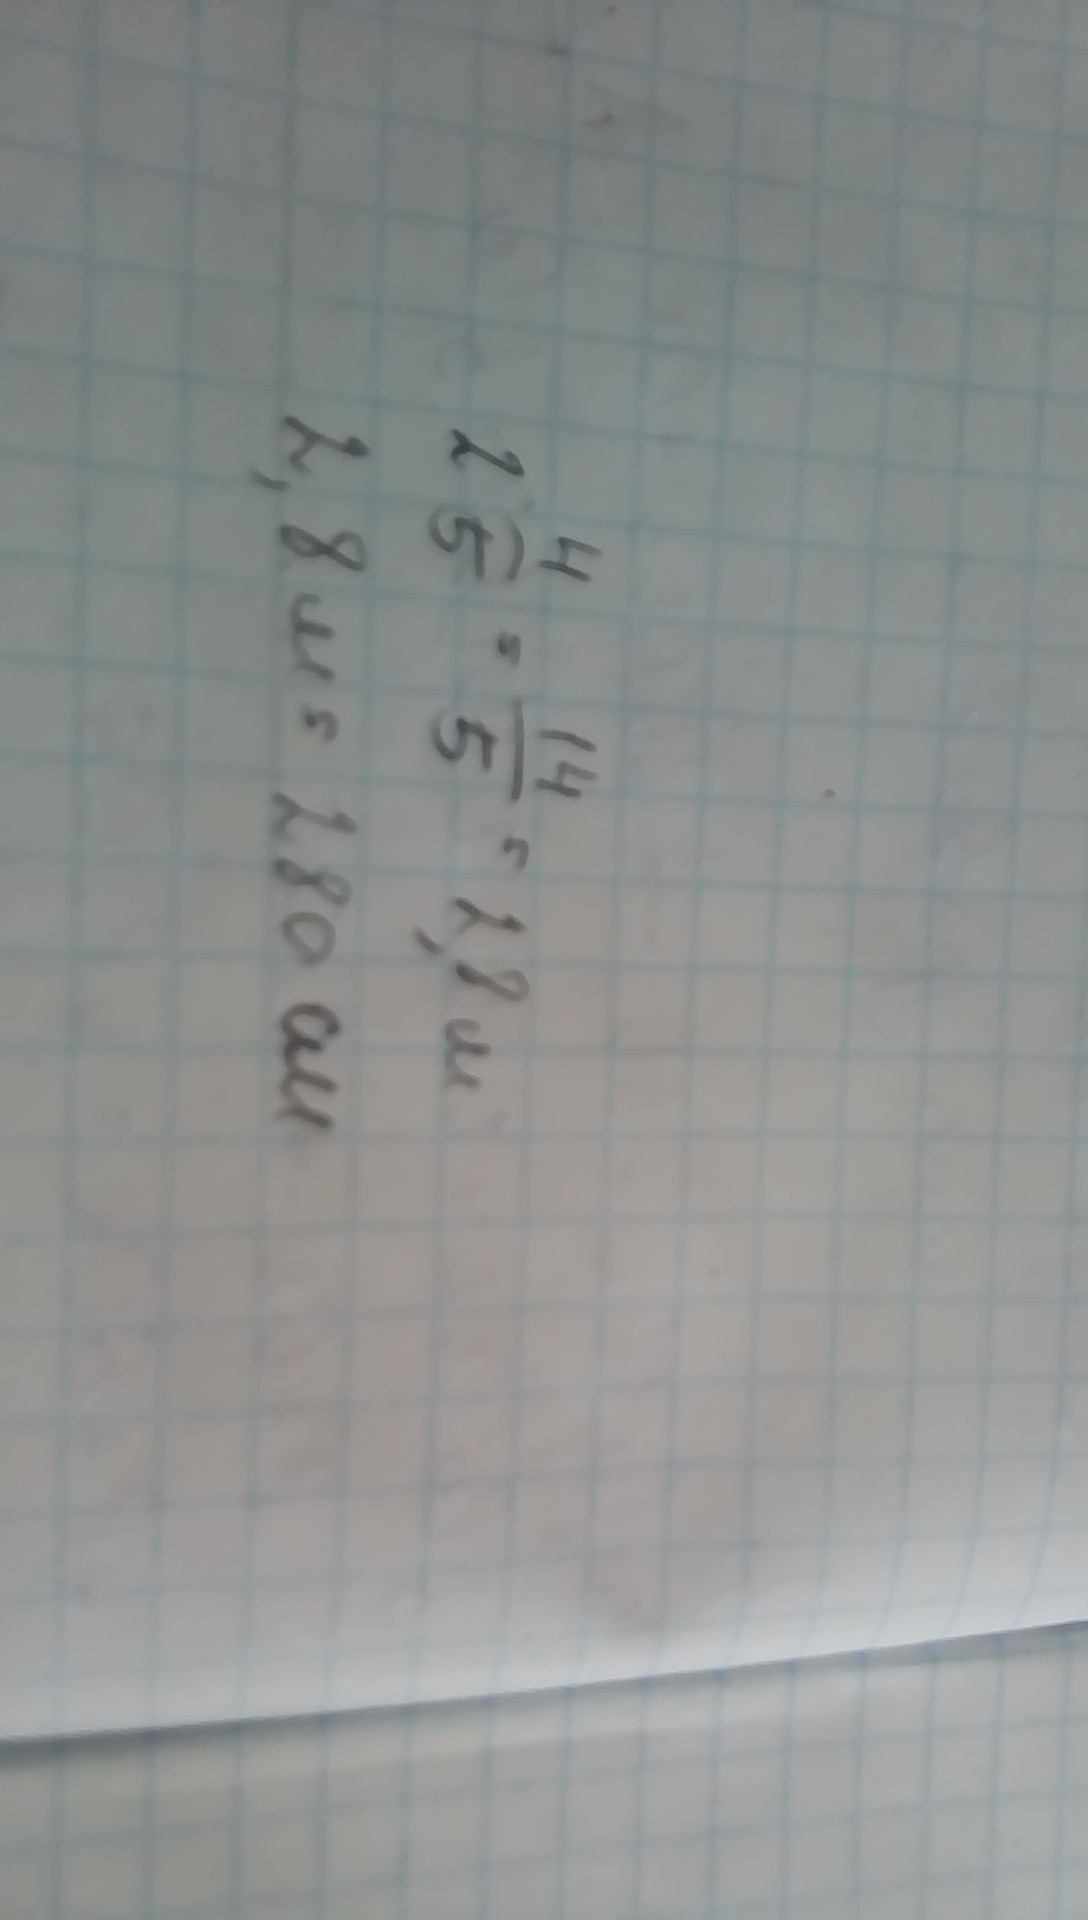 2 4/5 = 14/5 = 2,8 м
2,8 м = 280 см